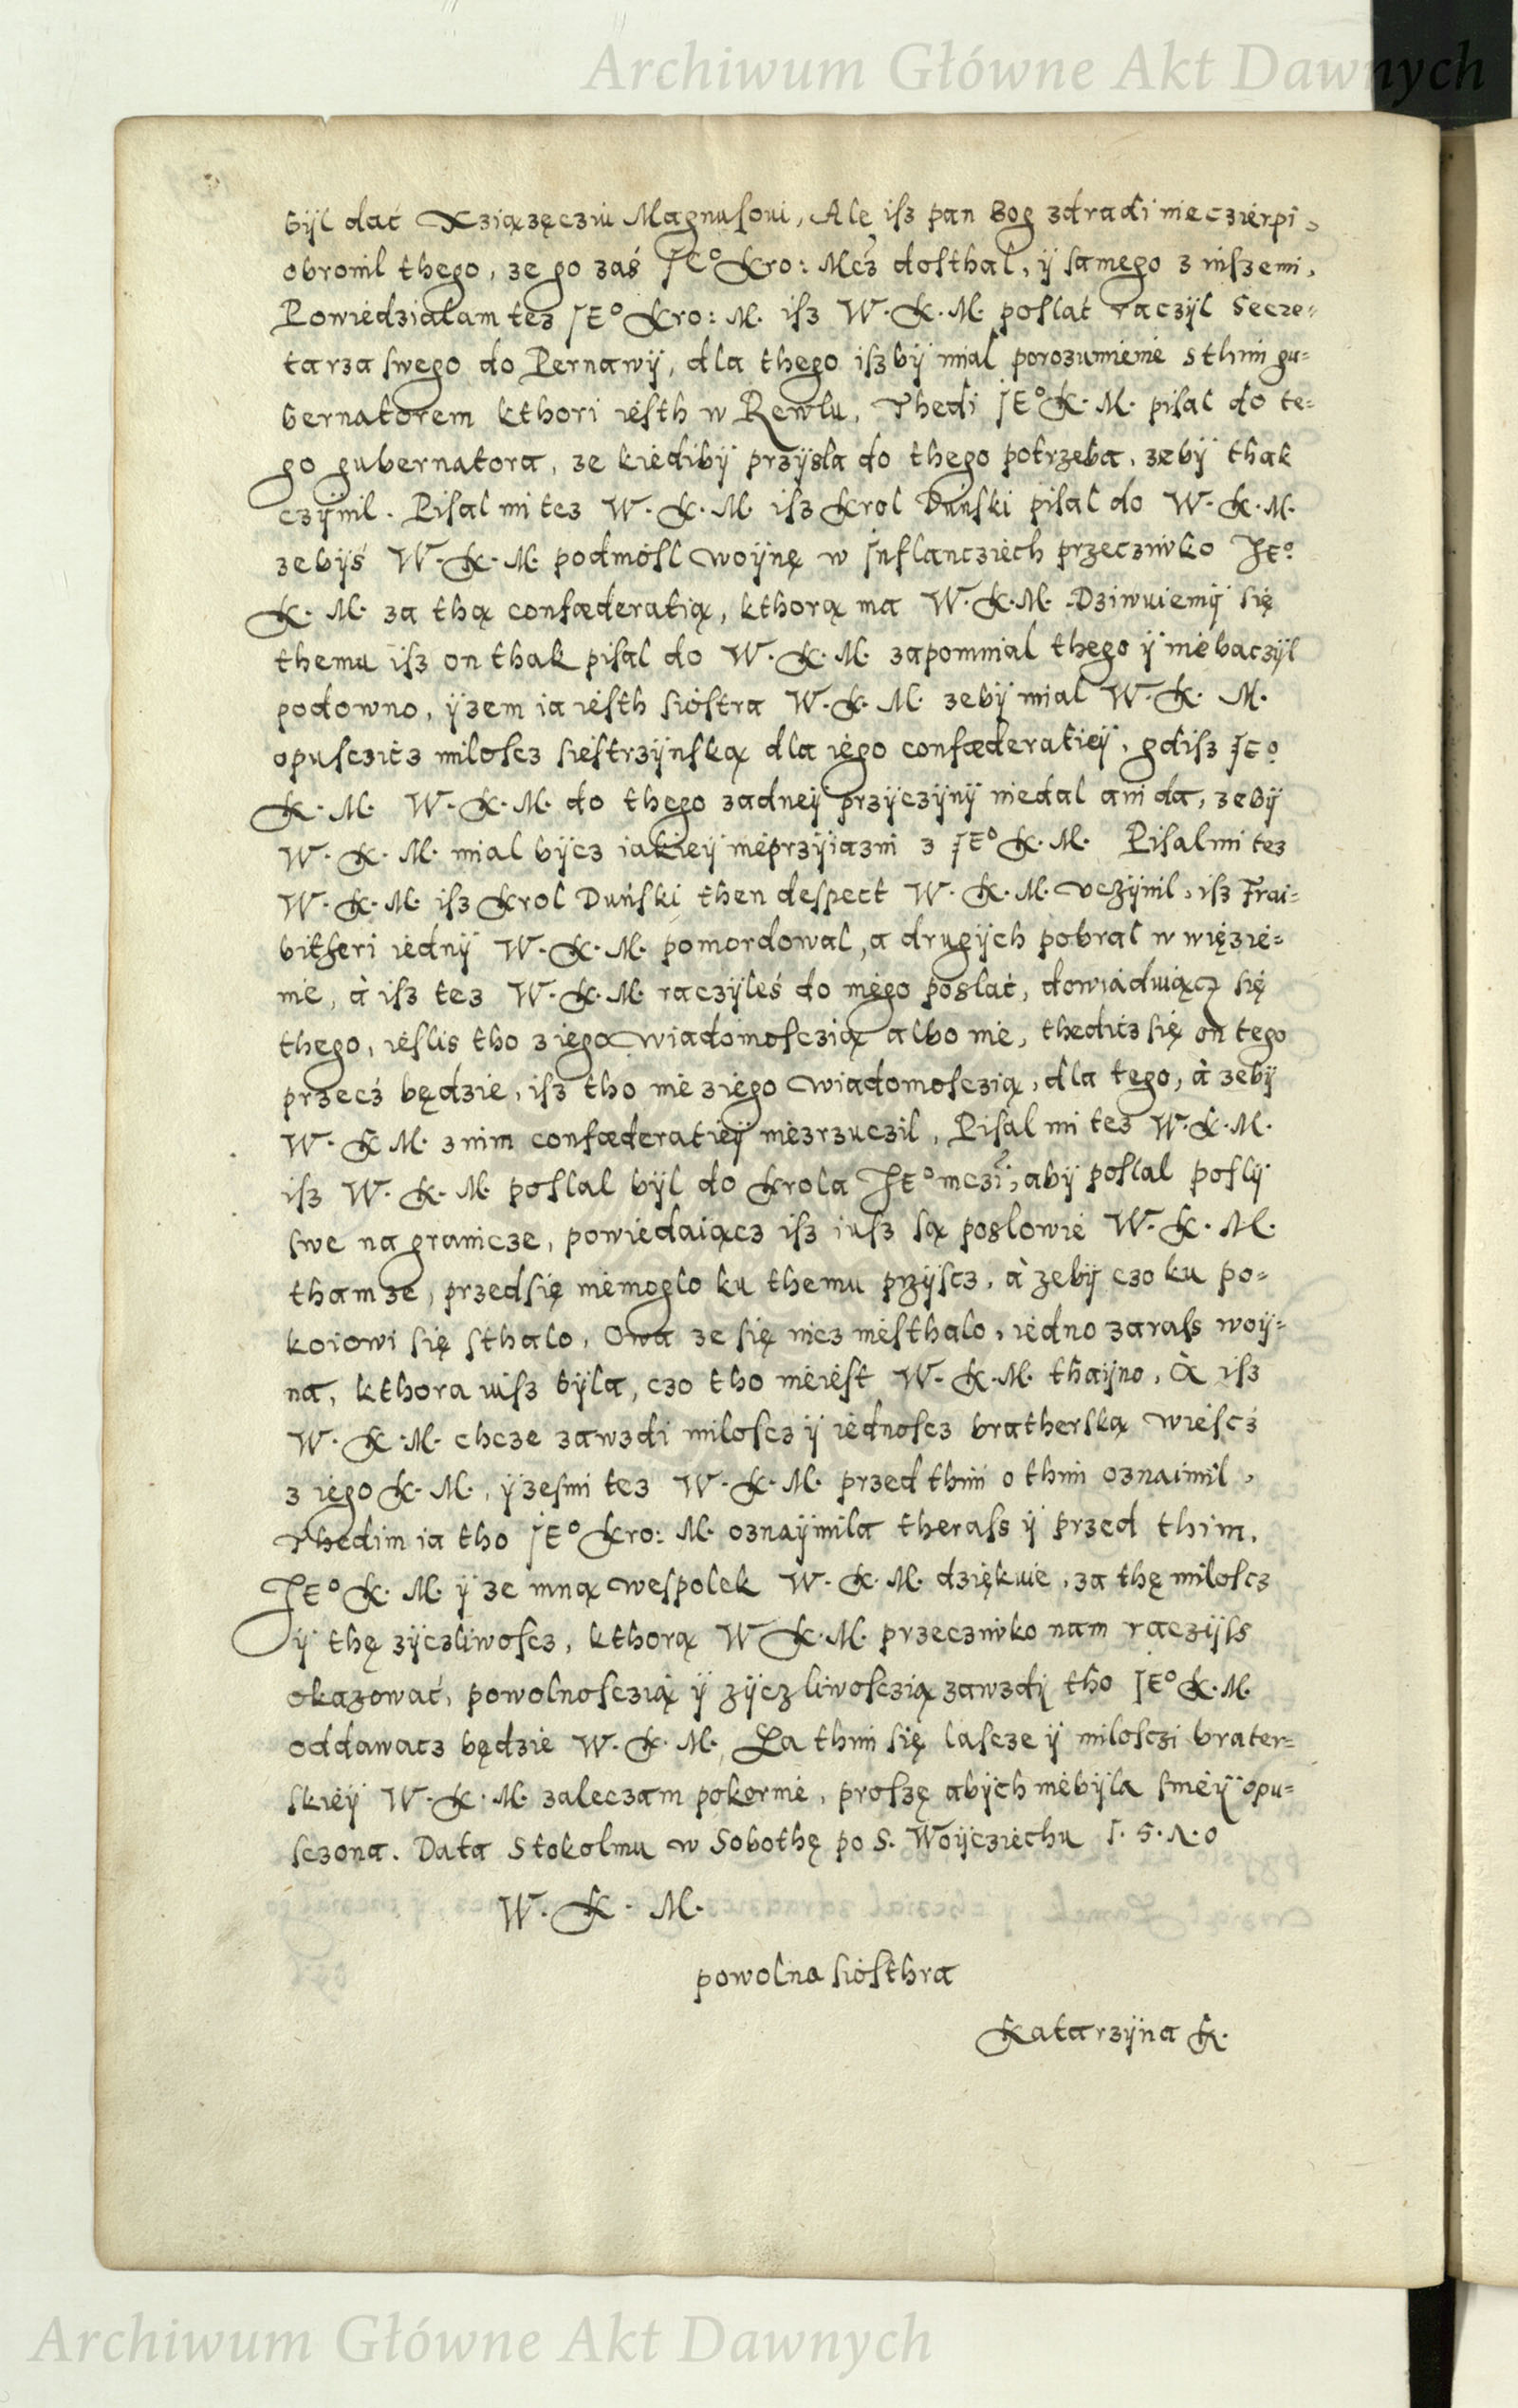 Archiwum Główne Akt Dawnych
bÿl dać Xziązęcziu Magnuſoui, Ale iſz pan Bog zdradi nieczierpi,
obronil thego, ze go zaś JEº Kro: Mcź doſthal, ÿ ſamego z inſzemi,
Powiedzialam tez JEº Kro: M. iſz W. K. M. poſlat raczÿl Secre=
tarza ſwego do Pernawÿ, dla thego iſzbÿ mial porozumienie sthim gu=
bernatorem kthori ieſth w Rewlu, Thedi JEº K. M. piſal do te=
go gubernatora, ze kiedibÿ przÿsla do thego potrzeba, zebÿ thak
czÿnil. Piſal mi tez W. K. M. iſz Krol Duńſki piſal do W. K. M.
zebÿś W. K. M. podnióſl woÿnę w Inflancziech przecziwko JEº
K. M. za thą confæderatią, kthorą ma W. K. M. Dziwuiemÿ się
themu iſz on thak piſal do W. K. M. zapomnial thego ÿ niebaczÿl
podowno, ÿzem ia ieſth sióſtra W. K. M. zebÿ mial W. K. M.
opuſczicz miloſcz sieſtrzÿnſką dla iego confæderatieÿ, gdiſz JEº
K. M. W. K. M. do thego zadneÿ przÿczÿnÿ niedal ani da, zebÿ
W. K. M. mial bÿcz iakieÿ nieprzÿiazni z JEº K. M. Piſal mi tez
W. K. M. iſz Krol Duńſki then deſpect W. K. M. vczÿnil, iſz Frai=
bitheri iednÿ W. K. M. pomordowal, a drugÿch pobral w więzie=
nie, à iſz tez W. K. M. raczÿleś do niego poslać, dowiaduiącz się
thego, ieſlis tho z iego wiadomoſczią albo nie, thedicz się on tego
przecź będzie, iſz tho nie ziego wiadomoſczią, dla tego, à zebÿ
W. K M. znim confæderatieÿ niezrzuczil, Piſal mi tez W. K. M.
iſz W. K. M. poſlal bÿl do Krola JEº mczi, abÿ poſlal poſlÿ
ſwe na granicze, powiedaiącz iſz iuſz ſą poslowie W. K. M.
tham ze, przedſię niemoglo ku themu przÿſcz, à zebÿ czo ku po=
koiowi się ſthalo, Owa ze się nicz nieſthalo, iedno zaraſs woÿ=
na, kthora uiſz bÿla, czo tho nieieſt W. K. M. thaÿno, à iſz
W. K. M. chcze zawzdi miloſcz ÿ iednoſcz bratherſką wieſcź
z iego K. M., ÿ zeſmi tez W. K. M. przed thim o thim oznaimil,
Thedim ia tho JEº Kro: M. oznaÿmila theraſs ÿ przed thim.
JEº K. M. ÿ ze mną weſpolek W. K. M. dziękuie, za thę miloſcz
ÿ thę zÿczliwoſcz, kthorą W K. M. przecziwko nam raczÿſs
okazować, powolnoſczią ÿ zÿczliwoſczią zawzdÿ tho JEº K. M.
oddawacz będzie W. K. M. Za thim się laſcze ÿ miloſczi brater=
ſkieÿ W. K. M. zaleczam pokornie, proſzę abÿch niebÿla ſnieÿ opu=
ſczona. Data Stokolmu w Sobothę po S. Woÿcziechu 1. 5. 7. 0
W. K. M.
powolna sióſthra
Katarzÿna K.
Archiwum Główne Akt Dawnych